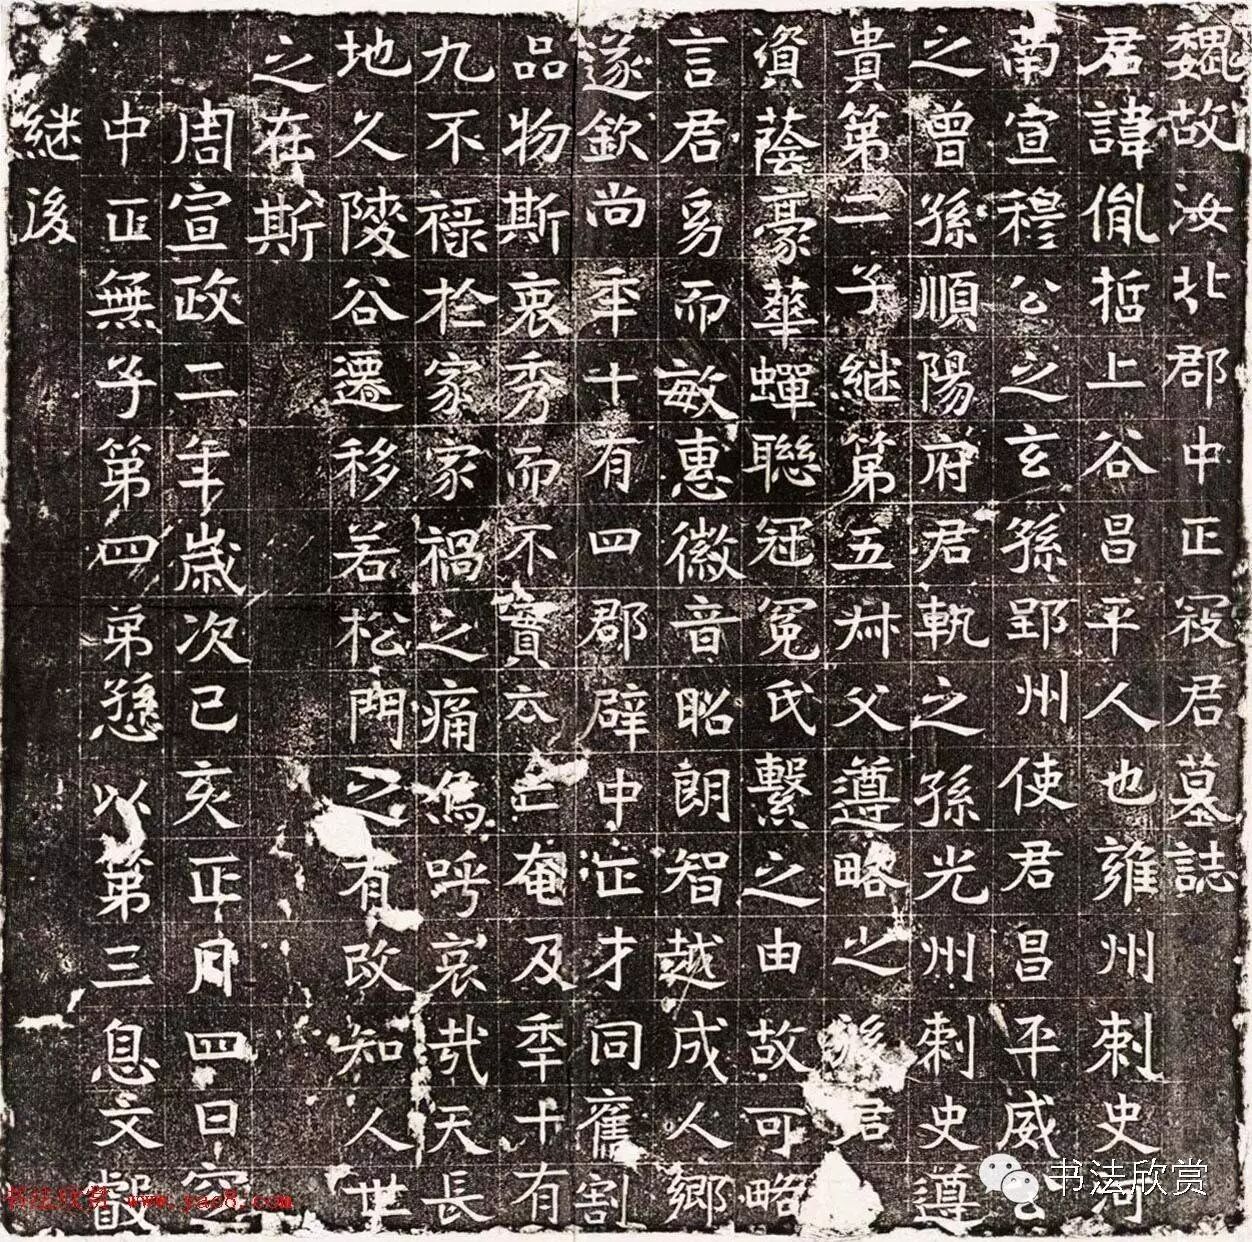 魏故汝北郡中正寇君墓誌
君諱胤哲上谷昌平人也雍州刺史河
南宣穆公之玄孫郢州使君昌平威公
之曾孫順陽府君軌之孫光州刺史遵
貴第二子継第五叔父遵略之後君
資蔭豪華蟬聯冠冕氏繫之由故可略
言君㓜而敏惠徽音昭朗智越成人鄉
遂欽尚年十有四郡辟中正才同舊割
品物斯衷秀而不實云亡奄及年十有
九不祿於家家禍之痛嗚呼哀哉天長
地久陵谷遷移若松門之有改知人世
之在斯
周宣政二年歲次己亥正月四日窆
中正無子第四弟愻以第三息文叡
継後
书法欣赏
书法欣赏 www.yac8.com